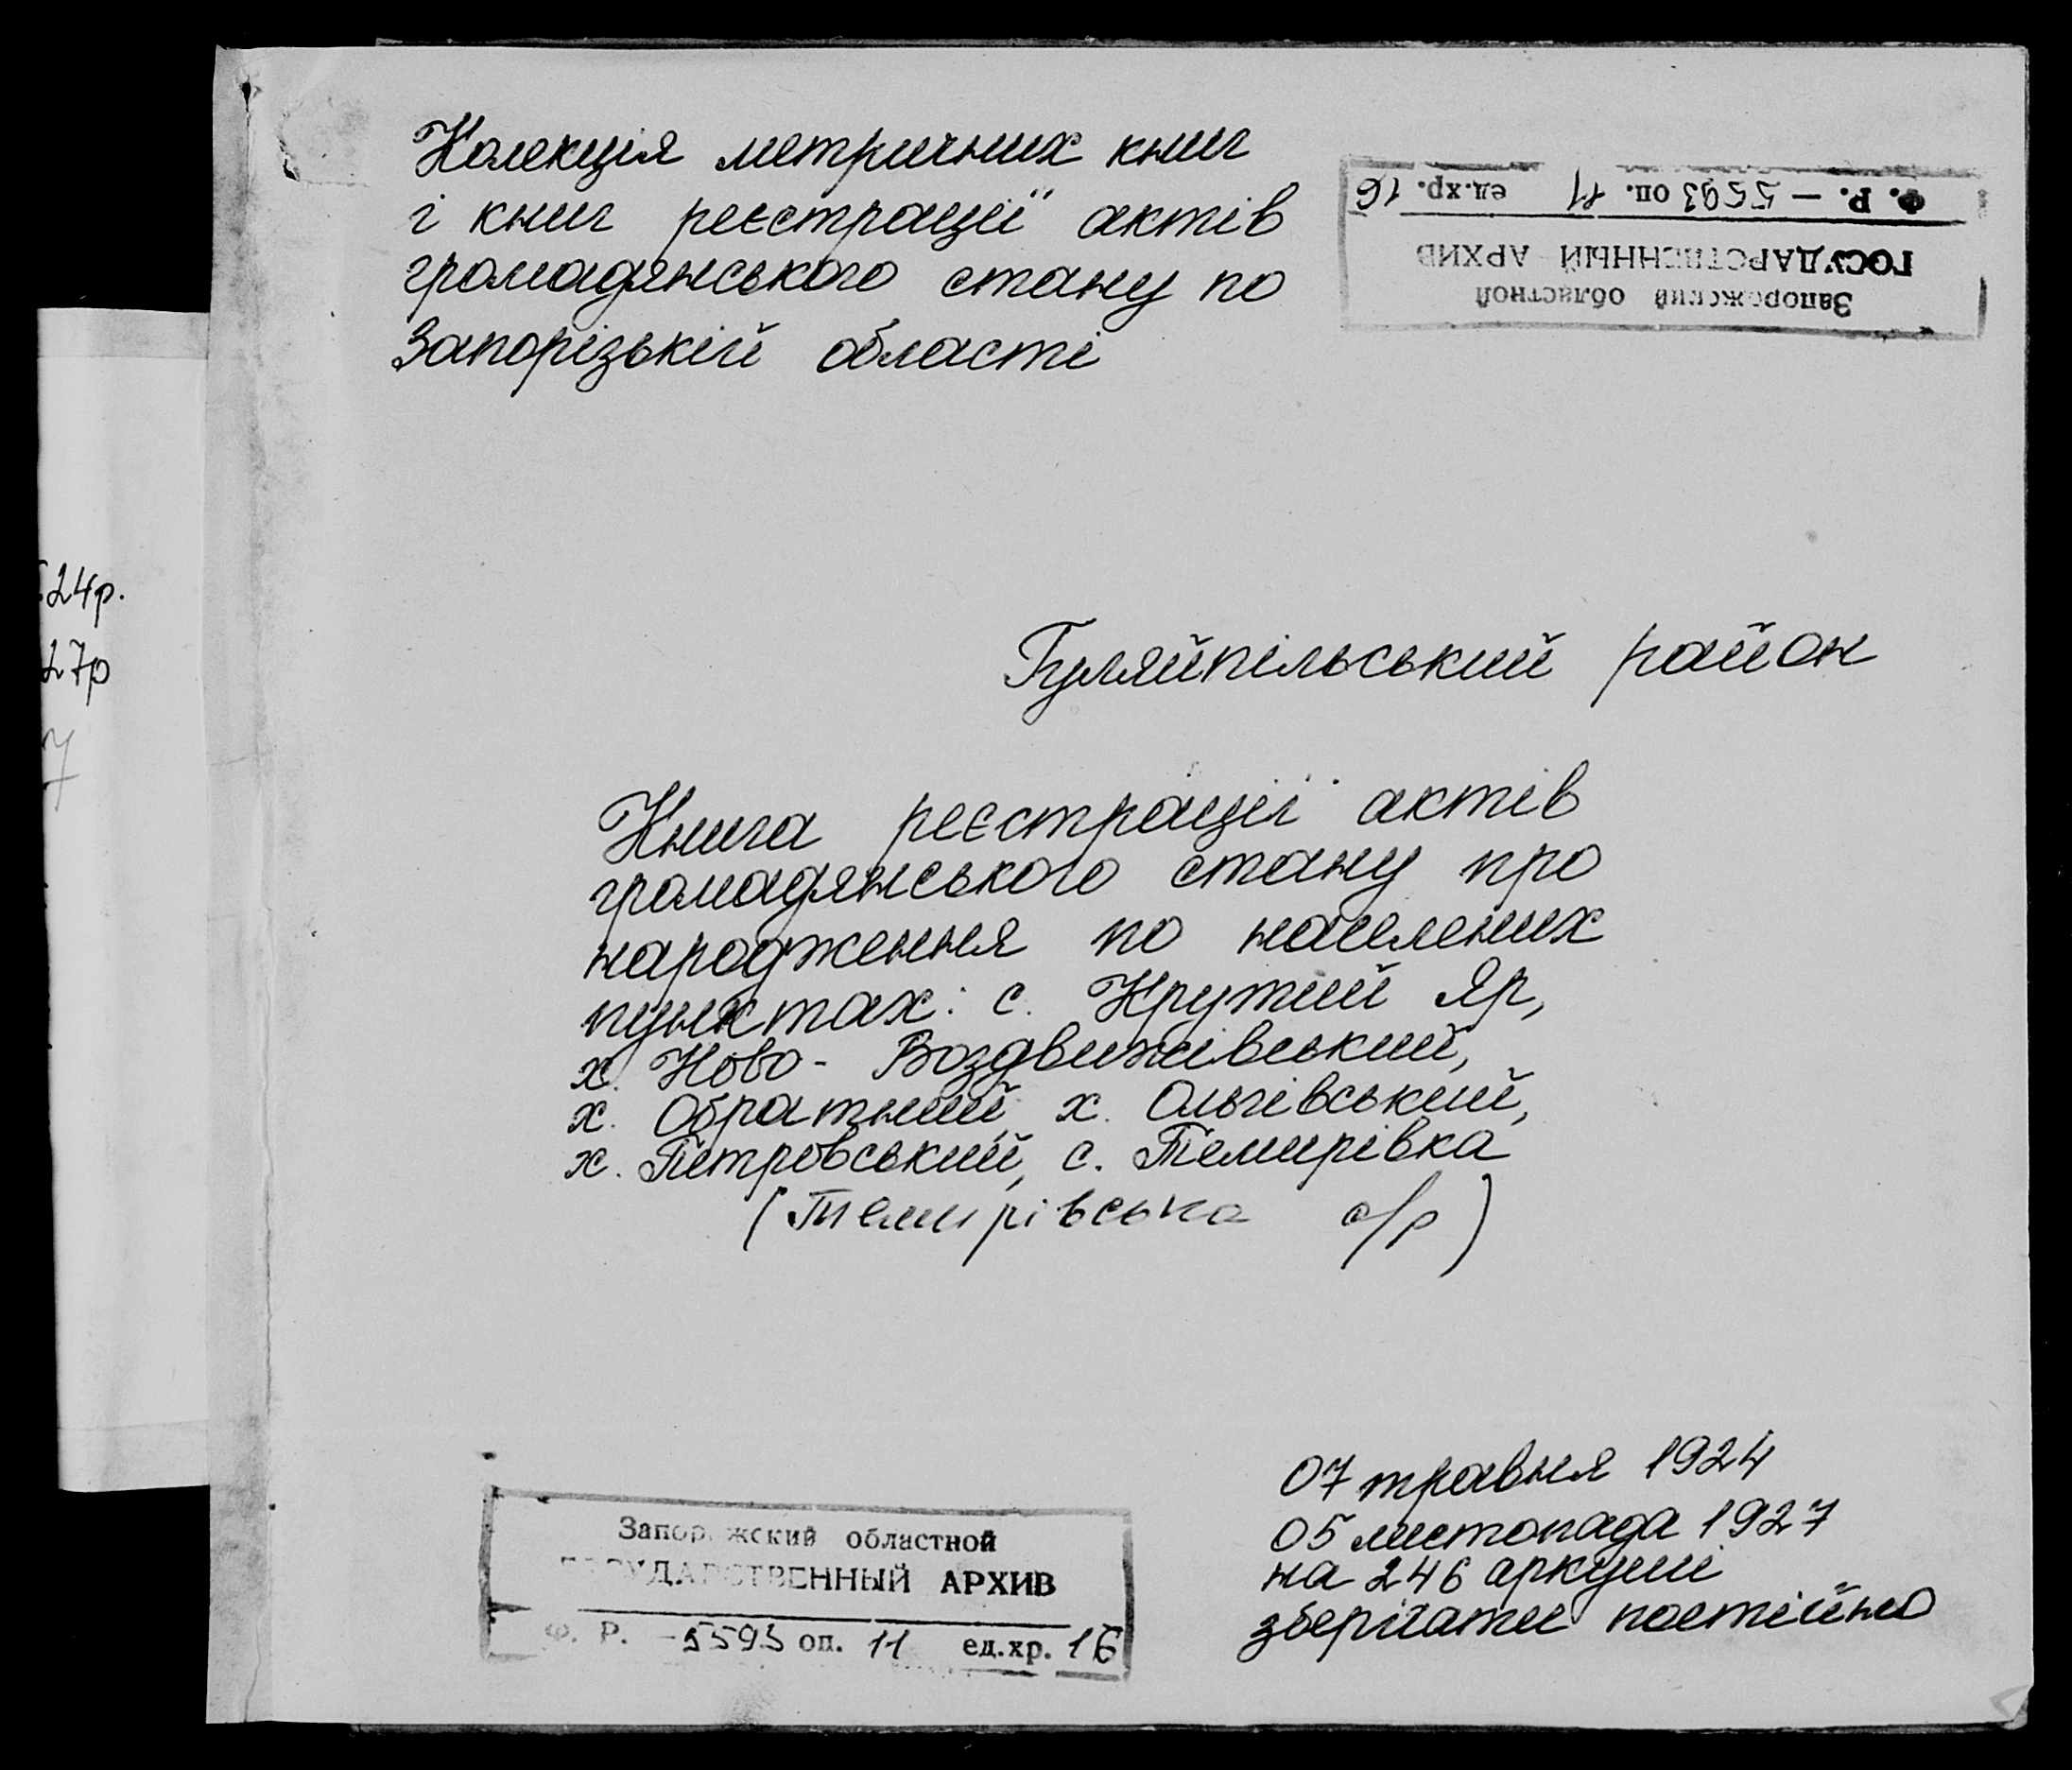 Колекція метричних книг
і книг реєстрації актів
громадянського стану по
Запорізькій області
Запорожский областной
ГОСУДАРСТВЕННЫЙ АРХИВ
Ф. Р. — 5593 оп. 11 ед.хр. 16
24р.
27р
7
Гуляйпільський район
Книга реєстрації актів
громадянського стану про
народження по населених
пунктах: с. Крутий Яр,
х. Ново- Воздвижівський,
х. Обратний, х. Ольгівський,
х. Петровський, с. Темирівка
(Темирівська с/р)
07 травня 1924
05 листопада 1927
на 246 аркуші
зберігати постійно
Запорожский областной
ГОСУДАРСТВЕННЫЙ АРХИВ
Ф. Р. - 5593 оп. 11 ед.хр. 16